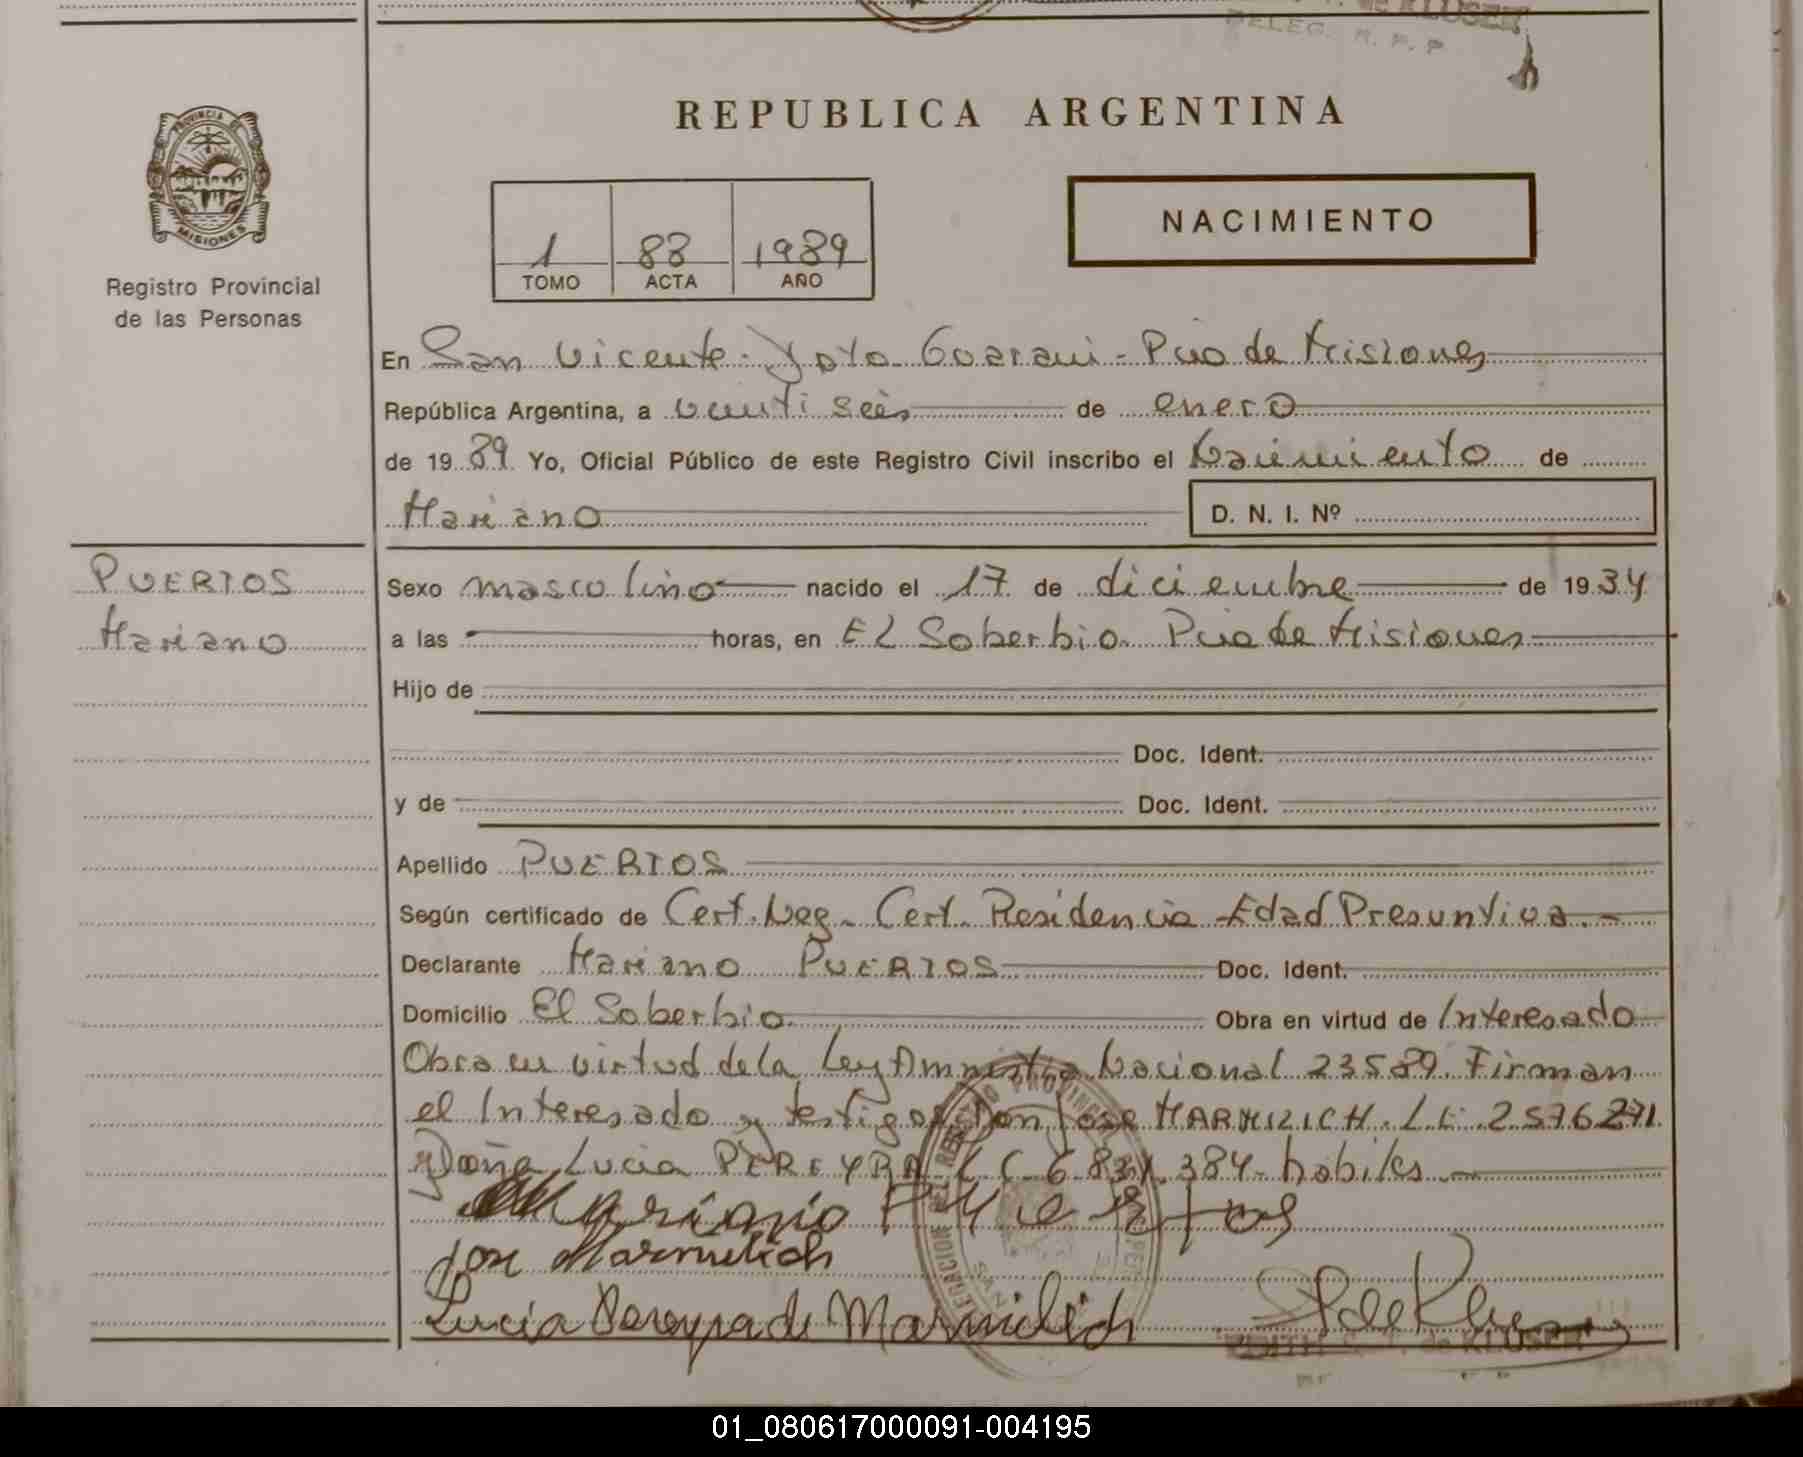 de KLUSER
DELEG. R. P. P
REPUBLICA ARGENTINA
PROVINCIA DE
MISIONES
Registro Provincial
de las Personas
1 88 1989
TOMO ACTA AÑO
NACIMIENTO
En San Vicente - Dpto Guarani - Pcia de Misiones
República Argentina, a veinti seis de enero
de 1989 Yo, Oficial Público de este Registro Civil inscribo el Nacimiento de
Mariano D. N. I. Nº
PUERTOS
Mariano
Sexo masculino nacido el 17 de diciembre de 1934
a las horas, en El Soberbio Pcia de Misiones
Hijo de
Doc. Ident.
y de Doc. Ident.
Apellido PUERTOS
Según certificado de Cert. Neg. Cert. Residencia Edad Presuntiva.-
Declarante Mariano PUERTOS Doc. Ident.
Domicilio El Soberbio Obra en virtud de Interesado
Obra en virtud de la Ley Amnistia Nacional 23589. Firman
el Interesado y testigos Don Jose MARMILICH. L.E. 2576271
y Doña Lucia PEREYRA L C 6.831.384- habiles.-
Mariano Puertos
Jose Marmelich
Lucia Pereyra de Marmilich
EDITH de KLUSER
01_080617000091-004195